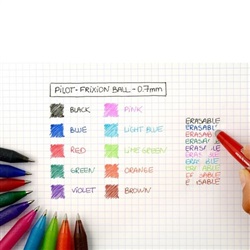 PILOT-FRIXION BALL-0.7mm
BLACK
PINK
BLUE
LIGHT BLUE
RED
LIME GREEN
GREEN
ORANGE
VIOLET
BROWN
ERASABLE
ERASABL
ERASABLE
ERASABLE
ERASABLE
ERASABLE
ERASABLE
ER SABLE
E SABLE